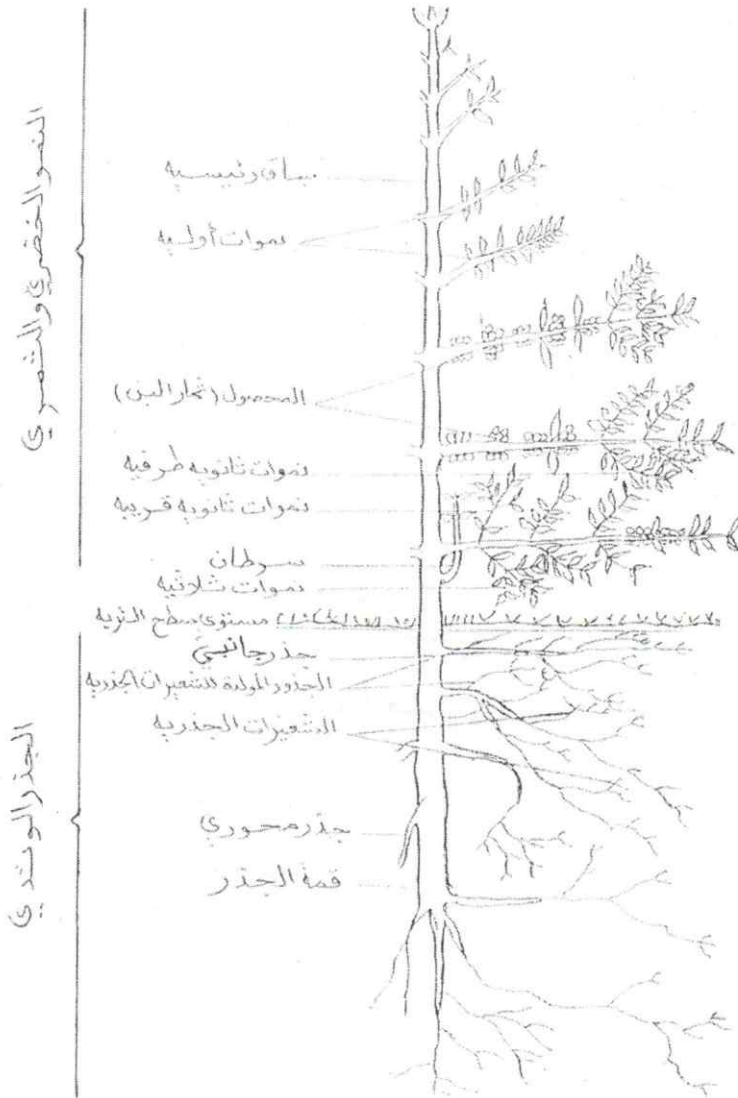 النمو الخضري والثمري
ساق رئيسيه
نموات أوليه
المحصول (ثمار البن)
نموات ثانويه طرفيه
نموات ثانويه قريبه
سرطان
نموات ثلاثيه
مستوى سطح التربه
جذر جانبي
الجذور المولدة للشعيرات الجذريه
الشعيرات الجذريه
جذر محوري
قمة الجذر
الجذر الوتدي